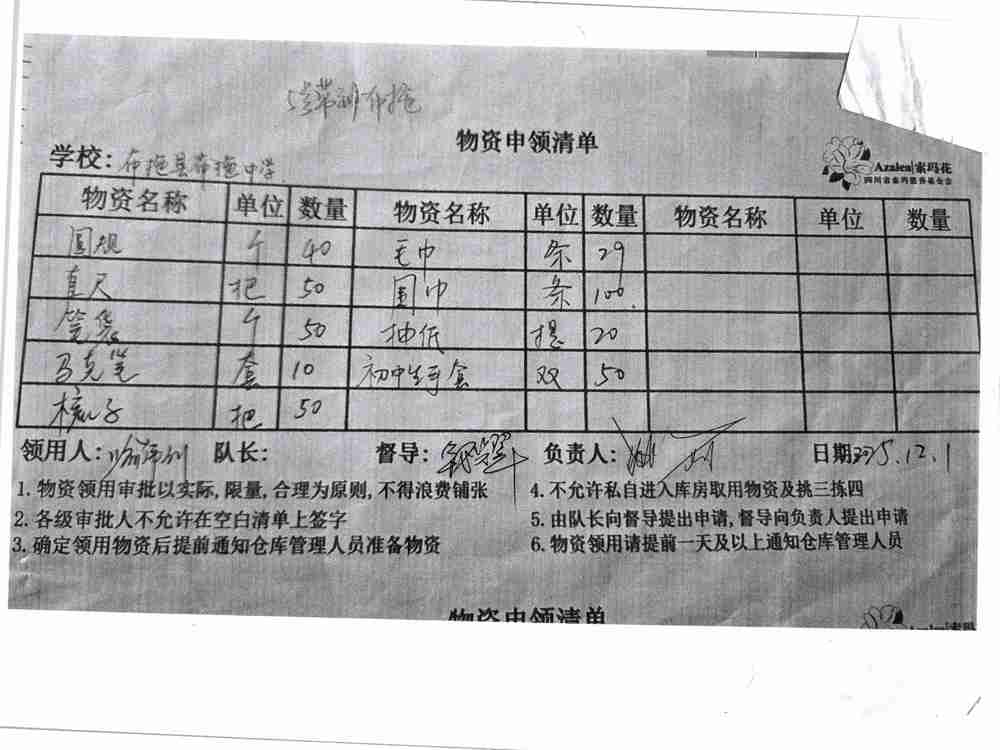 物资申领清单
学校：布拖县布拖中学
Azalea|索玛花
四川省索玛慈善基金会
物资名称 单位 数量 物资名称 单位 数量 物资名称 单位 数量
圆规 个 40 毛巾 条 29
直尺 把 50 围巾 条 100
笔袋 个 50 抽纸 提 20
马克笔 套 10 初中生手套 双 50
梳子 把 50
领用人： 队长： 督导： 负责人： 日期2025.12.1
1. 物资领用审批以实际, 限量, 合理为原则, 不得浪费铺张
2. 各级审批人不允许在空白清单上签字
3. 确定领用物资后提前通知仓库管理人员准备物资
4. 不允许私自进入库房取用物资及挑三拣四
5. 由队长向督导提出申请, 督导向负责人提出申请
6. 物资领用请提前一天及以上通知仓库管理人员
物资申领清单